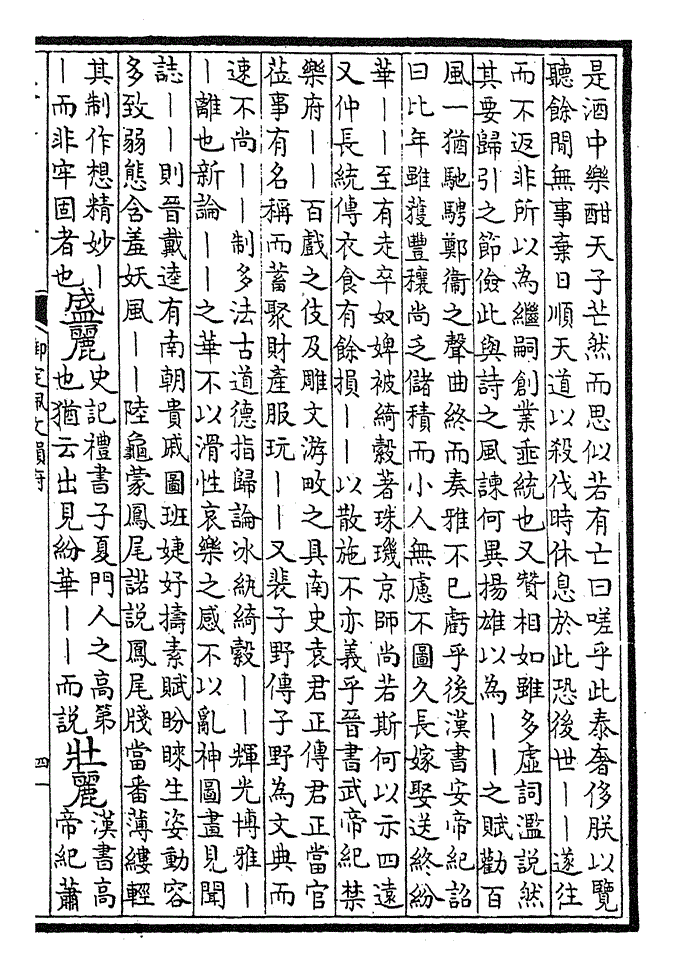 是酒中樂酣天子芒然而思似若有亡曰嗟乎此泰奢侈朕以覽
聽餘閒無事棄日順天道以殺伐時休息於此恐後世——遂往
而不返非所以為繼嗣創業垂統也又贊相如雖多虛詞濫説然
其要歸引之節儉此與詩之風諫何異揚雄以為——之賦勸百
風一猶馳騁鄭衞之聲曲終而奏雅不已虧乎後漢書安帝紀詔
曰比年雖獲豐穰尚乏儲積而小人無慮不圖久長嫁娶送終紛
華——至有走卒奴婢被綺縠著珠璣京師尚若斯何以示四遠
又仲長統傳衣食有餘損——以散施不亦義乎晉書武帝紀禁
樂府——百戲之伎及雕文游畋之具南史袁君正傳君正當官
莅事有名稱而蓄聚財產服玩——又裴子野傳子野為文典而
速不尚——制多法古道德指歸論冰紈綺縠——輝光博雅—
—離也新論——之華不以滑性哀樂之感不以亂神圖畫見聞
誌——則晉戴逵有南朝貴戚圖班婕妤擣素賦盼睞生姿動容
多致弱態含羞妖風——陸龜蒙鳳尾諾説鳳尾牋當番薄縷輕
其制作想精妙—
—而非牢固者也
盛麗
史記禮書子夏門人之高第
也猶云出見紛華——而説
壯麗
漢書高
帝紀蕭
御定佩文韻府
四